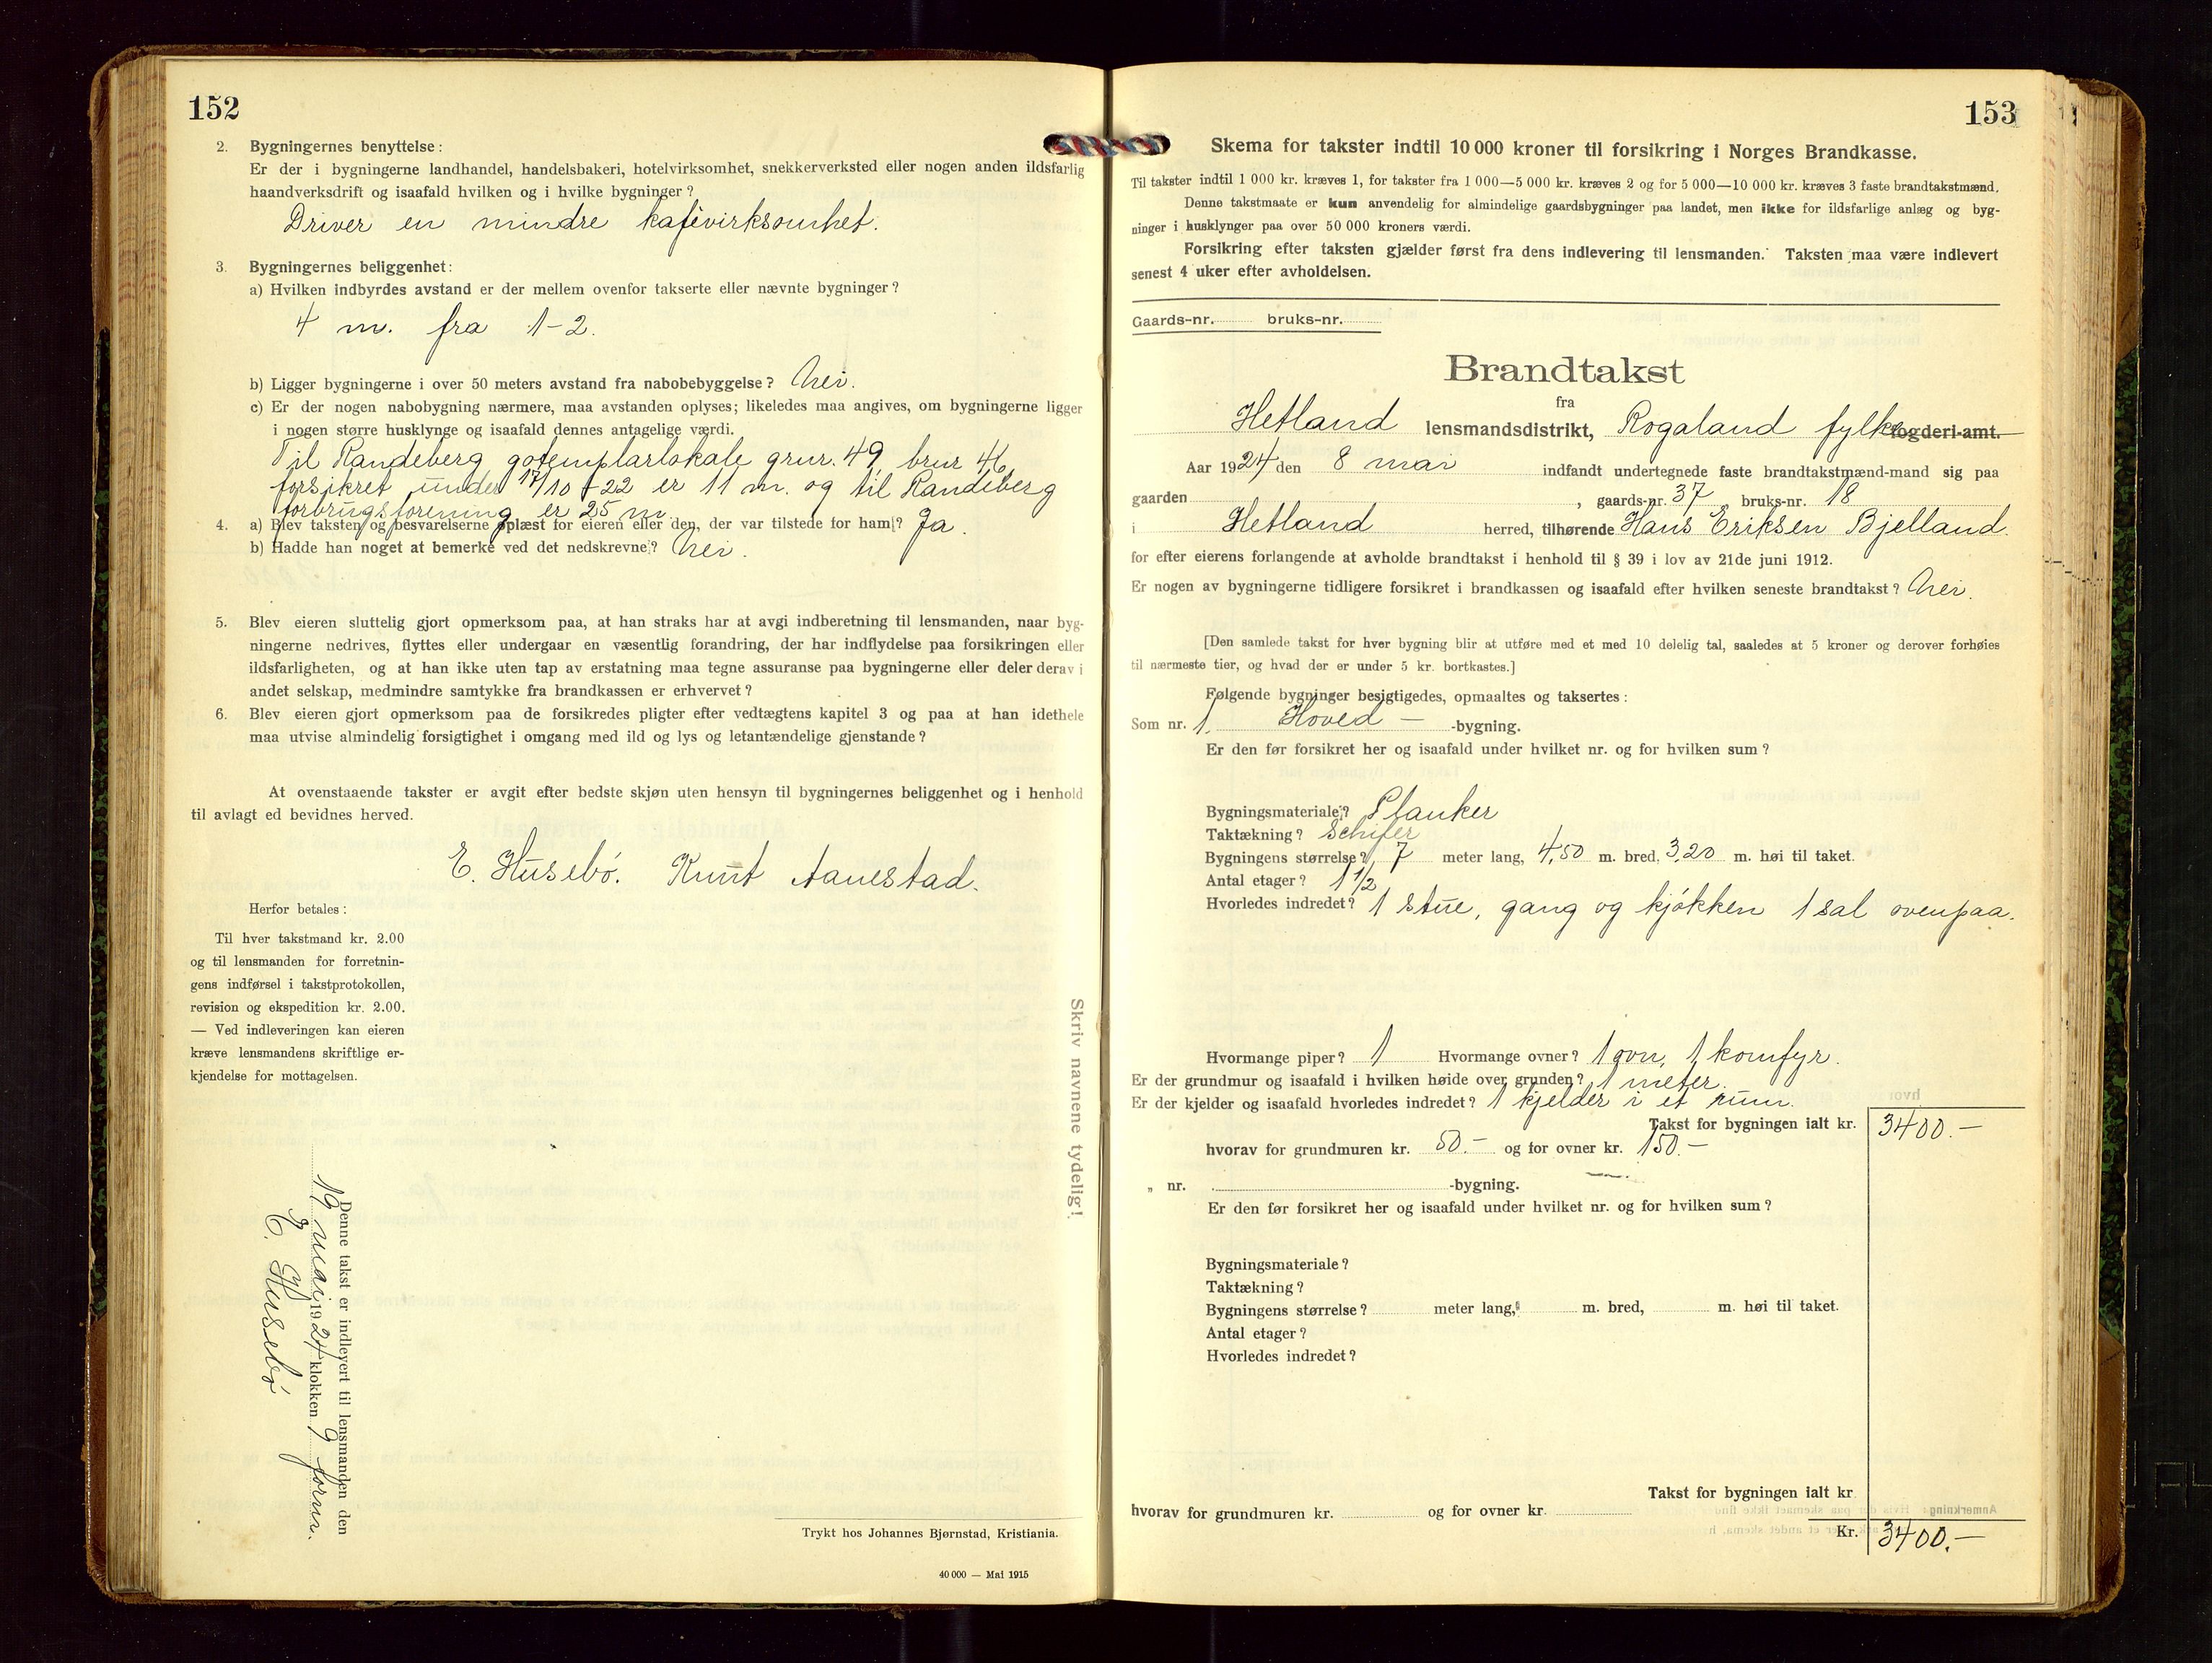 152
2. Bygningernes benyttelse:
Er der i bygningerne landhandel, handelsbakeri, hotelvirksomhet, snekkerverksted eller nogen anden ildsfarlig
haandverksdrift og isaafald hvilken og i hvilke bygninger?
Driver en mindre kafévirksomhet.
3. Bygningernes beliggenhet:
a) Hvilken indbyrdes avstand er der mellem ovenfor takserte eller nævnte bygninger?
4 m. fra 1-2.
b) Ligger bygningerne i over 50 meters avstand fra nabobebyggelse? Nei.
c) Er der nogen nabobygning nærmere, maa avstanden oplyses; likeledes maa angives, om bygningerne ligger
i nogen større husklynge og isaafald dennes antagelige værdi.
Til Randeberg gotemplarlokale grnr. 49, brnr 46,
forsikret under 17/10 - 22 er 11 m. og til Randeberg
forbrugsforening er 25 m.
4. a) Blev taksten og besvarelserne oplæst for eieren eller den, der var tilstede for ham? Ja.
b) Hadde han noget at bemerke ved det nedskrevne? Nei.
5. Blev eieren sluttelig gjort opmerksom paa, at han straks har at avgi indberetning til lensmanden, naar byg-
ningerne nedrives, flyttes eller undergaar en væsentlig forandring, der har indflydelse paa forsikringen eller
ildsfarligheten, og at han ikke uten tap av erstatning maa tegne assuranse paa bygningerne eller deler derav i
andet selskap, medmindre samtykke fra brandkassen er erhvervet?
6. Blev eieren gjort opmerksom paa de forsikredes pligter efter vedtægtens kapitel 3 og paa at han idethele
maa utvise almindelig forsigtighet i omgang med ild og lys og letantændelige gjenstande?
At ovenstaaende takster er avgit efter bedste skjøn uten hensyn til bygningernes beliggenhet og i henhold
til avlagt ed bevidnes herved.
E. Husebö. Knut Aanestad.
Herfor betales:
Til hver takstmand kr. 2.00
og til lensmanden for forretnin-
gens indførsel i takstprotokollen,
revision og ekspedition kr. 2.00.
— Ved indleveringen kan eieren
kræve lensmandens skriftlige er-
kjendelse for mottagelsen.
Skriv navnene tydelig!
Denne takst er indlevert til lensmanden den
19 mai 1924 klokken 9 form.
E. Husebö
Trykt hos Johannes Bjørnstad, Kristiania.
40 000 — Mai 1915
153
Skema for takster indtil 10 000 kroner til forsikring i Norges Brandkasse.
Til takster indtil 1 000 kr. kræves 1, for takster fra 1 000—5 000 kr. kræves 2 og for 5 000—10 000 kr. kræves 3 faste brandtakstmænd.
Denne takstmaate er kun anvendelig for almindelige gaardsbygninger paa landet, men ikke for ildsfarlige anlæg og byg-
ninger i husklynger paa over 50 000 kroners værdi.
Forsikring efter taksten gjælder først fra dens indlevering til lensmanden. Taksten maa være indlevert
senest 4 uker efter avholdelsen.
Gaards-nr. bruks-nr.
Brandtakst
fra
Hetland lensmandsdistrikt, Rogaland fylke fogderi-amt.
Aar 1924 den 8 mai indfandt undertegnede faste brandtakstmænd-mand sig paa
gaarden , gaards-nr. 37 bruks-nr. 18
i Hetland herred, tilhørende Hans Eriksen Bjelland.
for efter eierens forlangende at avholde brandtakst i henhold til § 39 i lov av 21de juni 1912.
Er nogen av bygningerne tidligere forsikret i brandkassen og isaafald efter hvilken seneste brandtakst? Nei.
[Den samlede takst for hver bygning blir at utføre med et med 10 delelig tal, saaledes at 5 kroner og derover forhøies
til nærmeste tier, og hvad der er under 5 kr. bortkastes.]
Følgende bygninger besigtigedes, opmaaltes og taksertes:
Som nr. 1. Hoved- -bygning.
Er den før forsikret her og isaafald under hvilket nr. og for hvilken sum?
Bygningsmateriale? Planker
Taktækning? Schifer
Bygningens størrelse? 7 meter lang, 4,50 m. bred, 3,20 m. høi til taket.
Antal etager? 1 1/2
Hvorledes indredet? 1 stue, gang og kjökken 1 sal ovenpaa.
Hvormange piper? 1 Hvormange ovner? 1 ovn, 1 komfyr.
Er der grundmur og isaafald i hvilken høide over grunden? 1 meter.
Er der kjelder og isaafald hvorledes indredet? 1 kjelder i et rum.
Takst for bygningen ialt kr. 3400.-
hvorav for grundmuren kr. 50.- og for ovner kr. 150.-
„ nr. -bygning.
Er den før forsikret her og isaafald under hvilket nr. og for hvilken sum?
Bygningsmateriale?
Taktækning?
Bygningens størrelse? meter lang, m. bred, m. høi til taket.
Antal etager?
Hvorledes indredet?
Takst for bygningen ialt kr.
hvorav for grundmuren kr. og for ovner kr.
Kr. 3400.-